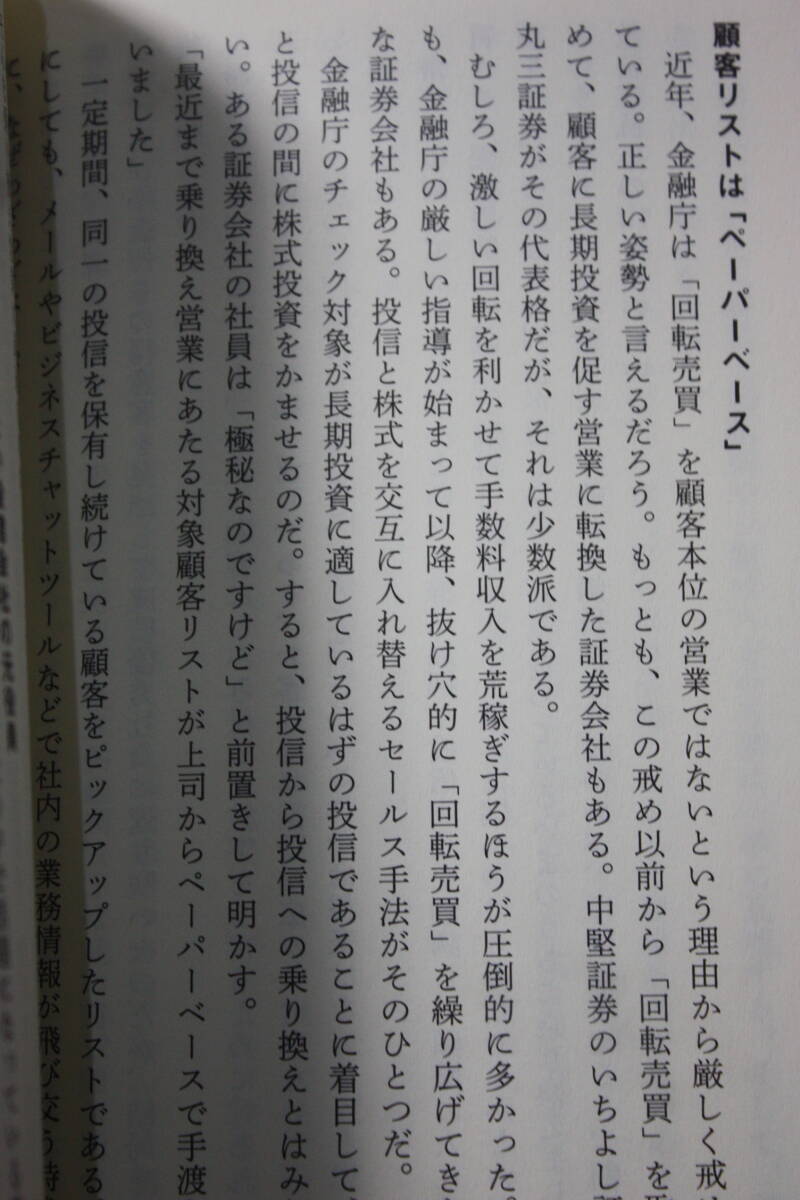 顧客リストは「ペーパーベース」
近年、金融庁は「回転売買」を顧客本位の営業ではないという理由から厳しく戒
ている。正しい姿勢と言えるだろう。もっとも、この戒め以前から「回転売買」を
めて、顧客に長期投資を促す営業に転換した証券会社もある。中堅証券のいちよし
丸三証券がその代表格だが、それは少数派である。
むしろ、激しい回転を利かせて手数料収入を荒稼ぎするほうが圧倒的に多かった。
も、金融庁の厳しい指導が始まって以降、抜け穴的に「回転売買」を繰り広げてき
な証券会社もある。投信と株式を交互に入れ替えるセールス手法がそのひとつだ。
金融庁のチェック対象が長期投資に適しているはずの投信であることに着目して
と投信の間に株式投資をかませるのだ。すると、投信から投信への乗り換えとはみ
い。ある証券会社の社員は「極秘なのですけど」と前置きして明かす。
「最近まで乗り換え営業にあたる対象顧客リストが上司からペーパーベースで手渡
いました」
一定期間、同一の投信を保有し続けている顧客をピックアップしたリストである
にしても、メールやビジネスチャットツールなどで社内の業務情報が飛び交う時